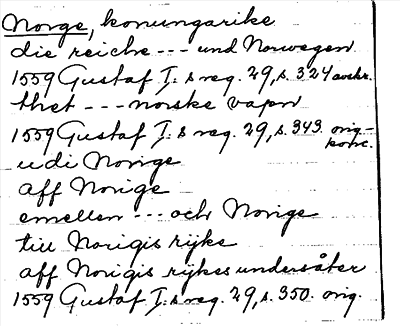 Norge, konungarike
die reiche --- und Norwegen
1559 Gustaf I:s reg. 29, s. 324 avskr.
thet --- norske vapn
1559 Gustaf I:s reg. 29, s. 343. orig.-
konc.
udi Norige
aff Norige
emellen --- och Norige
till Norigis rijke
aff Norigis rijkes undersåter
1559 Gustaf I:s reg. 29, s. 350. orig.